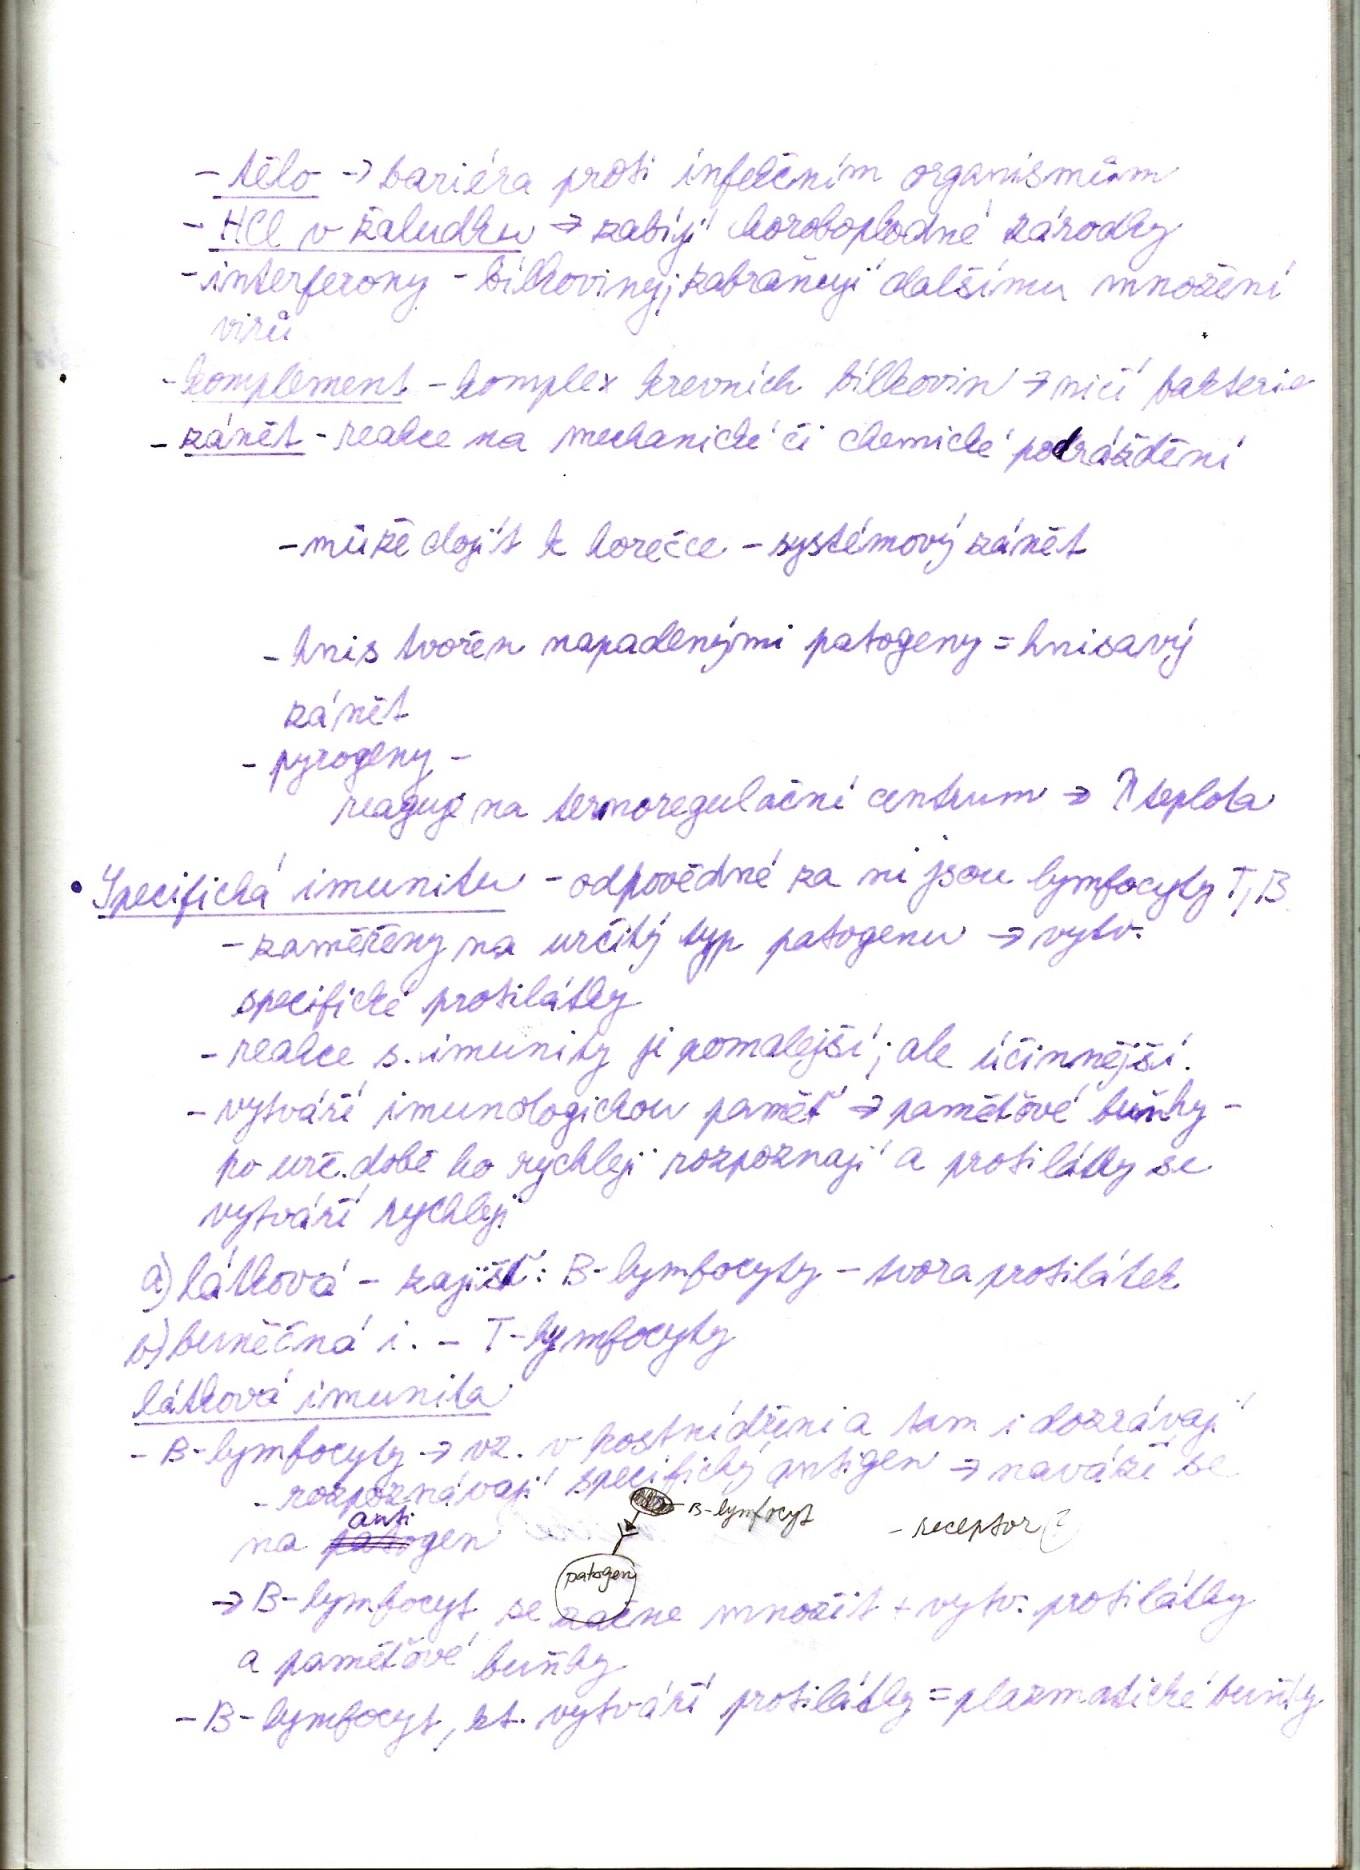 - tělo → bariéra proti infekčním organismům
- HCl v žaludku → zabíjí choroboplodné zárodky
- interferony - bílkoviny; zabraňují dalšímu množení
virů
- komplement - komplex krevních bílkovin → ničí bakterie
- zánět - reakce na mechanické či chemické podráždění
- může dojít k horečce - systémový zánět
- hnis tvořen napadenými patogeny = hnisavý
zánět
- pyrogeny -
reagují na termoregulační centrum → ↑ teplota
• Specifická imunita - odpovědné za ni jsou lymfocyty T, B
- zaměřeny na určitý typ patogenu → vytv.
specifické protilátky
- reakce s. imunity je pomalejší, ale účinnější.
- vytváří imunologickou paměť → paměťové buňky -
po urč. době ho rychleji rozpoznají a protilátky se
vytváří rychleji
a) látková - zajišť: B-lymfocyty - tvora protilátek
b) buněčná i. - T-lymfocyty
látková imunita
- B-lymfocyty → vz. v kostní dřeni a tam i dozrávají
- rozpoznávají specifický antigen → naváží se
na antigen
B-lymfocyt
- receptor
patogen
→ B-lymfocyt se začne množit + vytv. protilátky
a paměťové buňky
- B-lymfocyt, kt. vytváří protilátky = plazmatické buňky